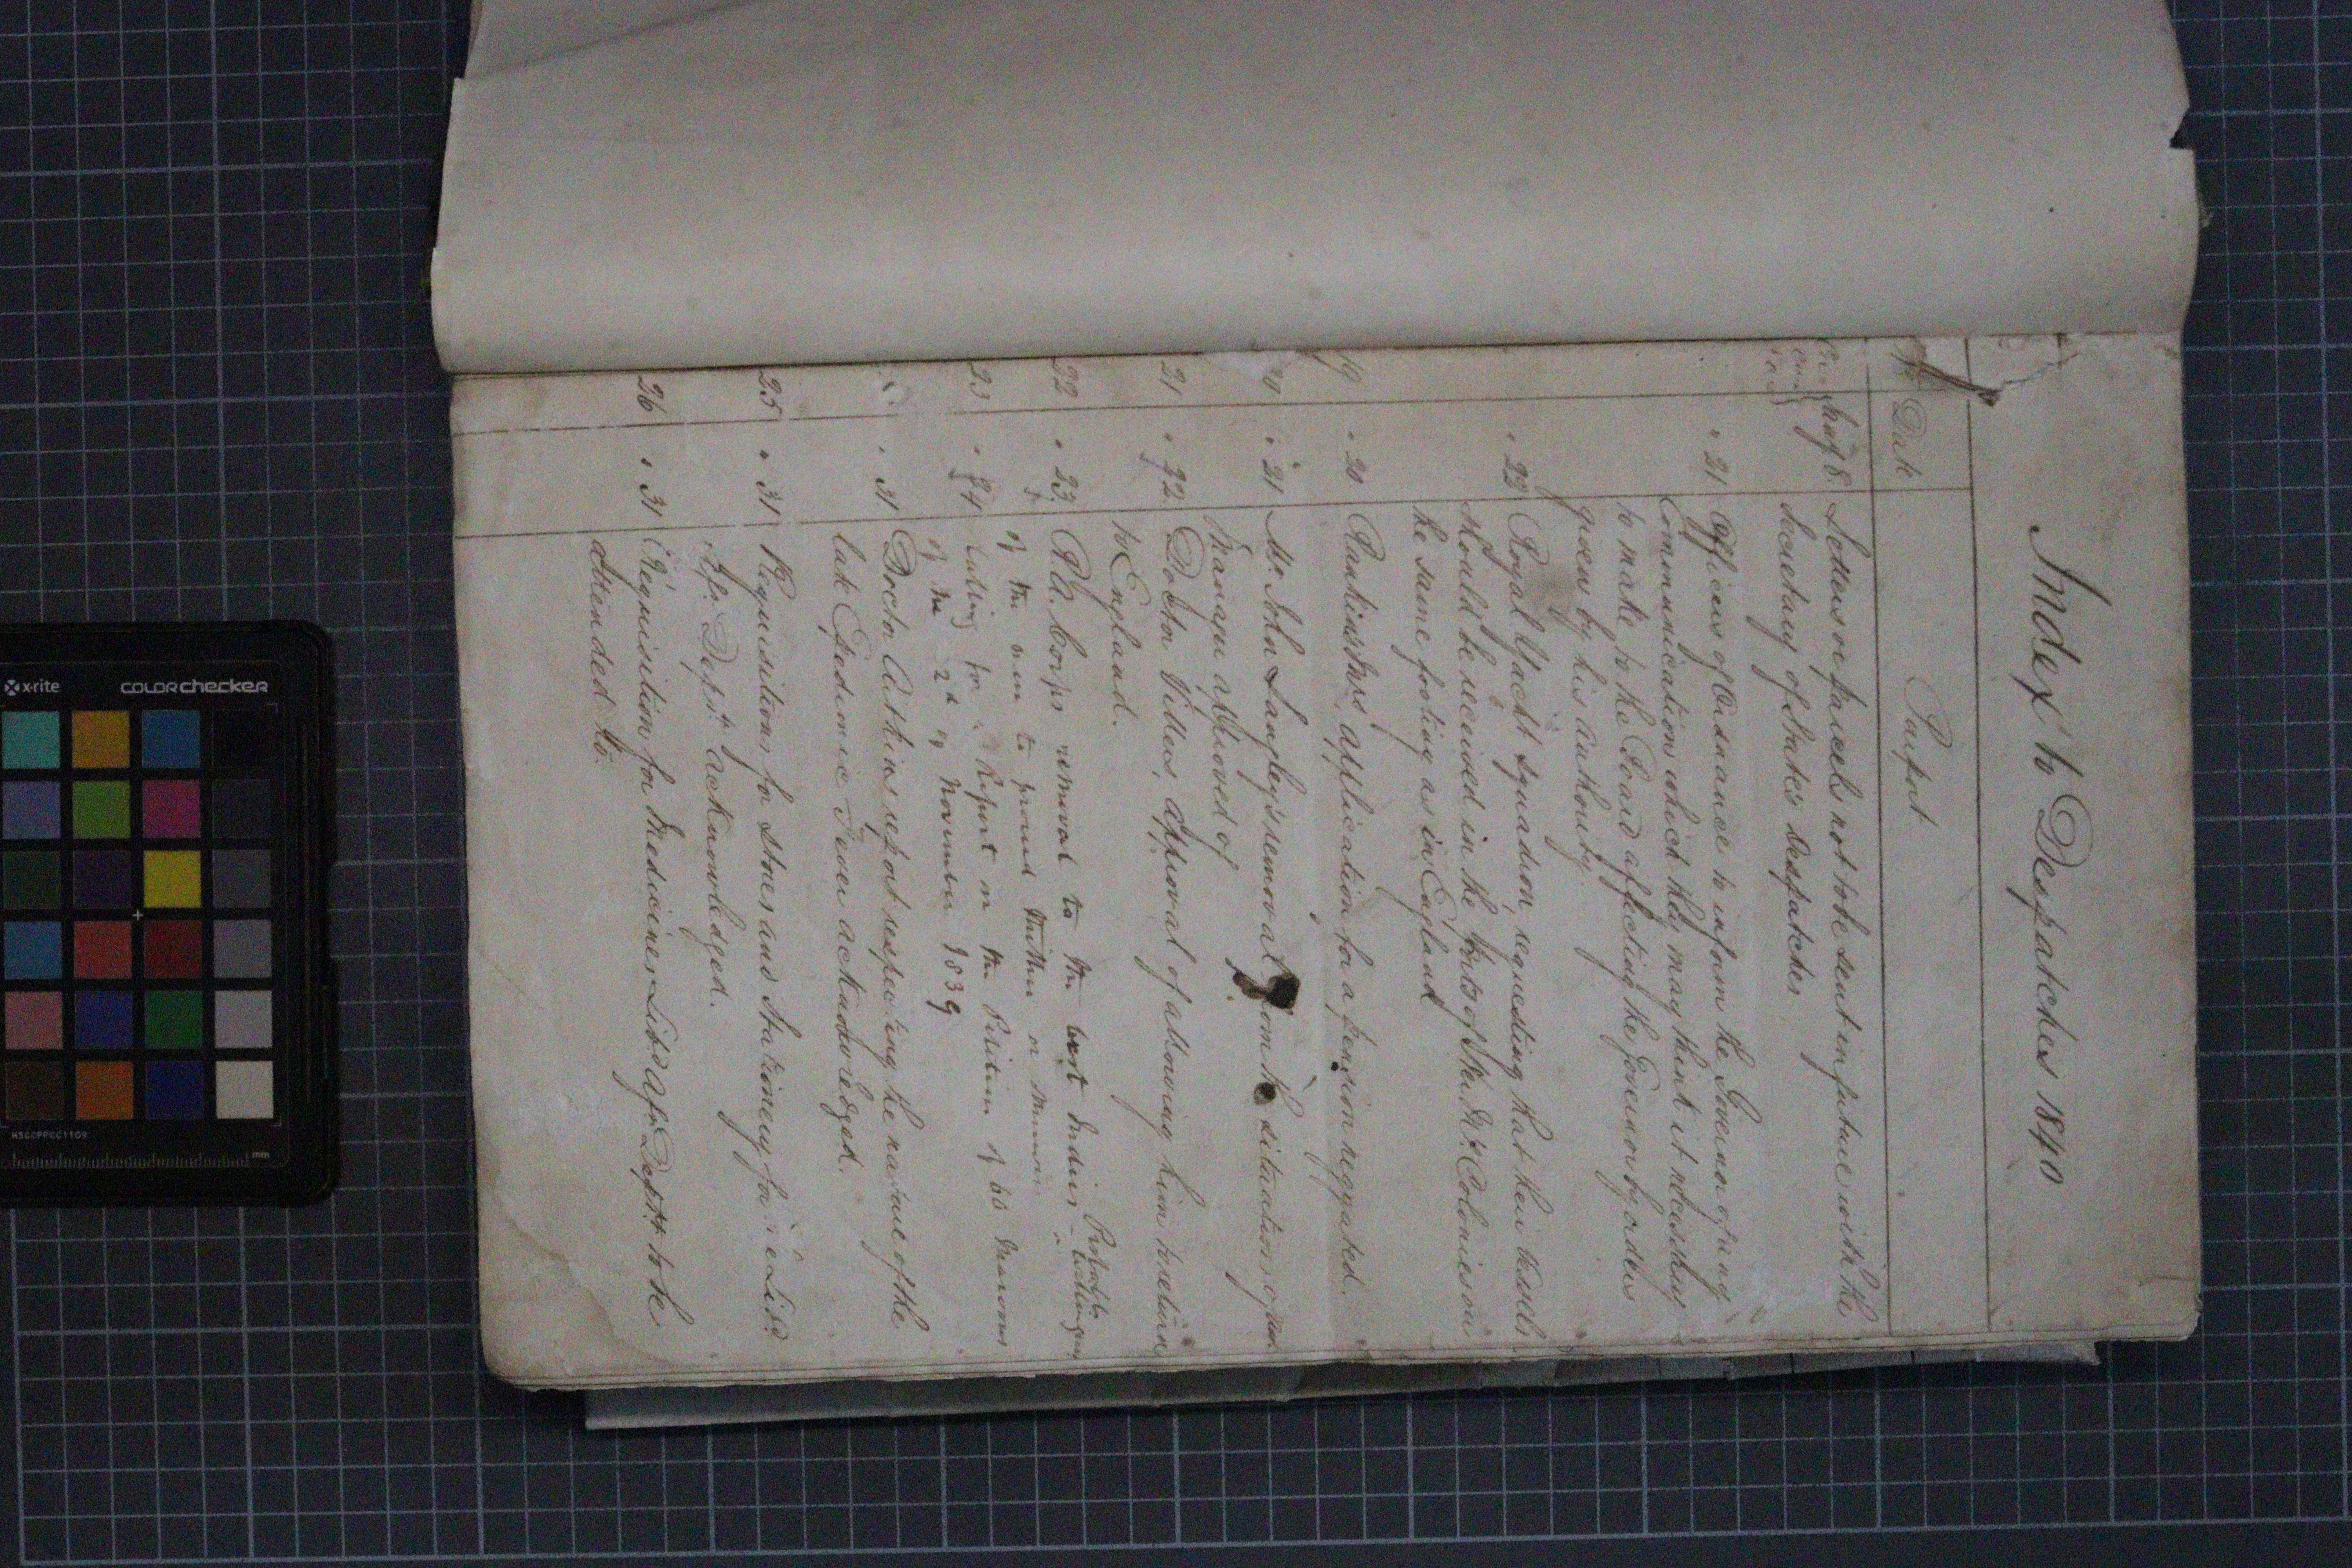 Index to Despatches 1840
No Date Purport
Augt 8 Letters or parcels not to be sent in future with the
Secretary of State's Despatches
" 21 Officers of Ordnance to inform the Governor of any
Communication which they may think it necessary
to make to the Board affecting the Governor by orders
given by his authority.
" 22 Royal Yacht Squadron, requesting that their Vessels
should be received in the Ports of the Colonies on
the same footing as in England
19 " 20 application for a pension negatived.
" 21 Mr. John Langley's removal from the situation of
Manager approved of
21 " 22 Doctor approval of allowing him to return
to England.
22 " 23 Rl. Corps removal to the West Indies - Probable
of the men to proceed thither
23 " 24 Calling for a Report on the Petition of 60
of the 2d of November 1839
" 31 Doctor report respecting the nature of the
late Epedemic Fever acknowledged.
25 " 31 Requisitions for Stores and Stationery for the Libd
Afr. Deptt acknowledged.
26 " 31 Requisition for Medicines Libd Afr Deptt to be
attended to.
x-rite colorchecker
mm